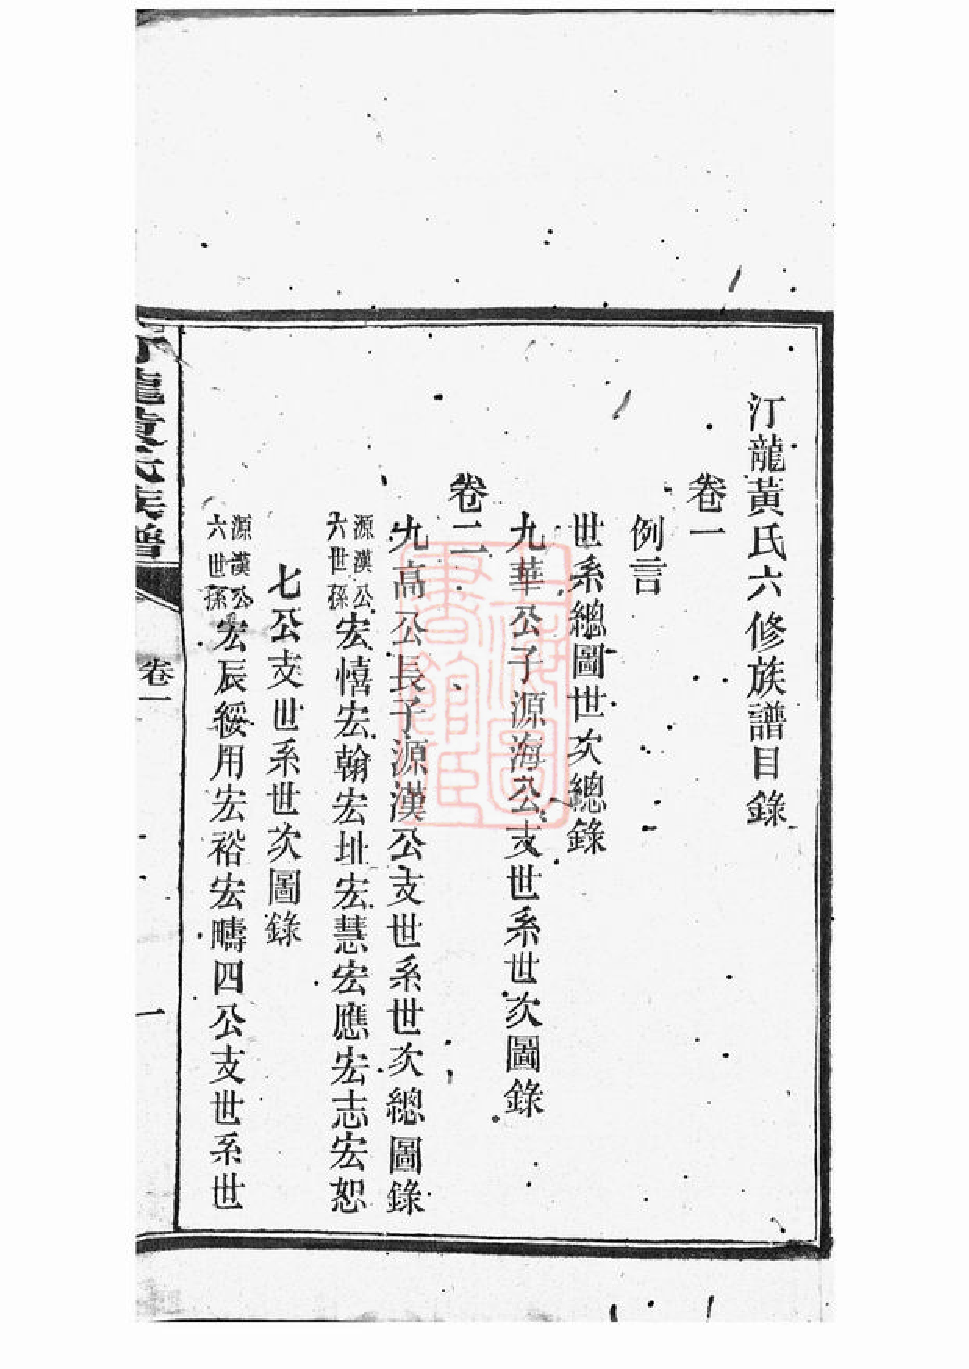 汀龍黃氏六修族譜目錄
卷一
例言
世系總圖世次總錄
九華公子源海公支世系世次圖錄
卷二
九高公長子源漢公支世系世次總圖錄
源漢公
六世孫
宏憘宏翰宏址宏慧宏應宏志宏恕
七公支世系世次圖錄
源漢公
六世孫
宏辰綏用宏裕宏疇四公支世系世
龍黃氏族譜
卷一
一
上海圖書館藏